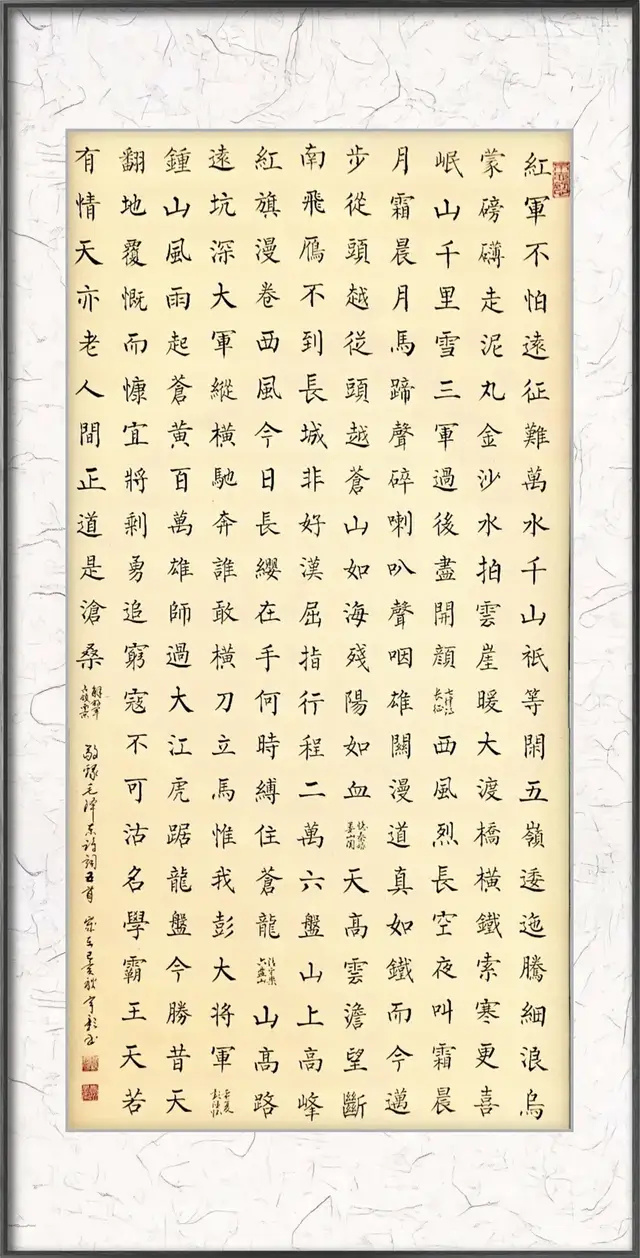 紅軍不怕遠征難萬水千山祇等閑五嶺逶迤騰細浪烏
蒙磅礴走泥丸金沙水拍雲崖暖大渡橋橫鐵索寒更喜
岷山千里雪三軍過後盡開顏七律長征西風烈長空夜叫霜晨
月霜晨月馬蹄聲碎喇叭聲咽雄關漫道真如鐵而今邁
步從頭越從頭越蒼山如海殘陽如血憶秦娥婁山關天髙雲澹望斷
南飛鴈不到長城非好漢屈指行程二萬六盤山上高峰
紅旗漫卷西風今日長纓在手何時縛住蒼龍清平樂六盤山山髙路
遠坑深大軍縱橫馳奔誰敢橫刀立馬惟我彭大将軍
鍾山風雨起蒼黃百萬雄師過大江虎踞龍盤今勝昔天
翻地覆慨而慷宜將剩勇追窮寇不可沽名學霸王天若
有情天亦老人間正道是滄桑
敬録毛泽东诗词五首 歲在己亥秋